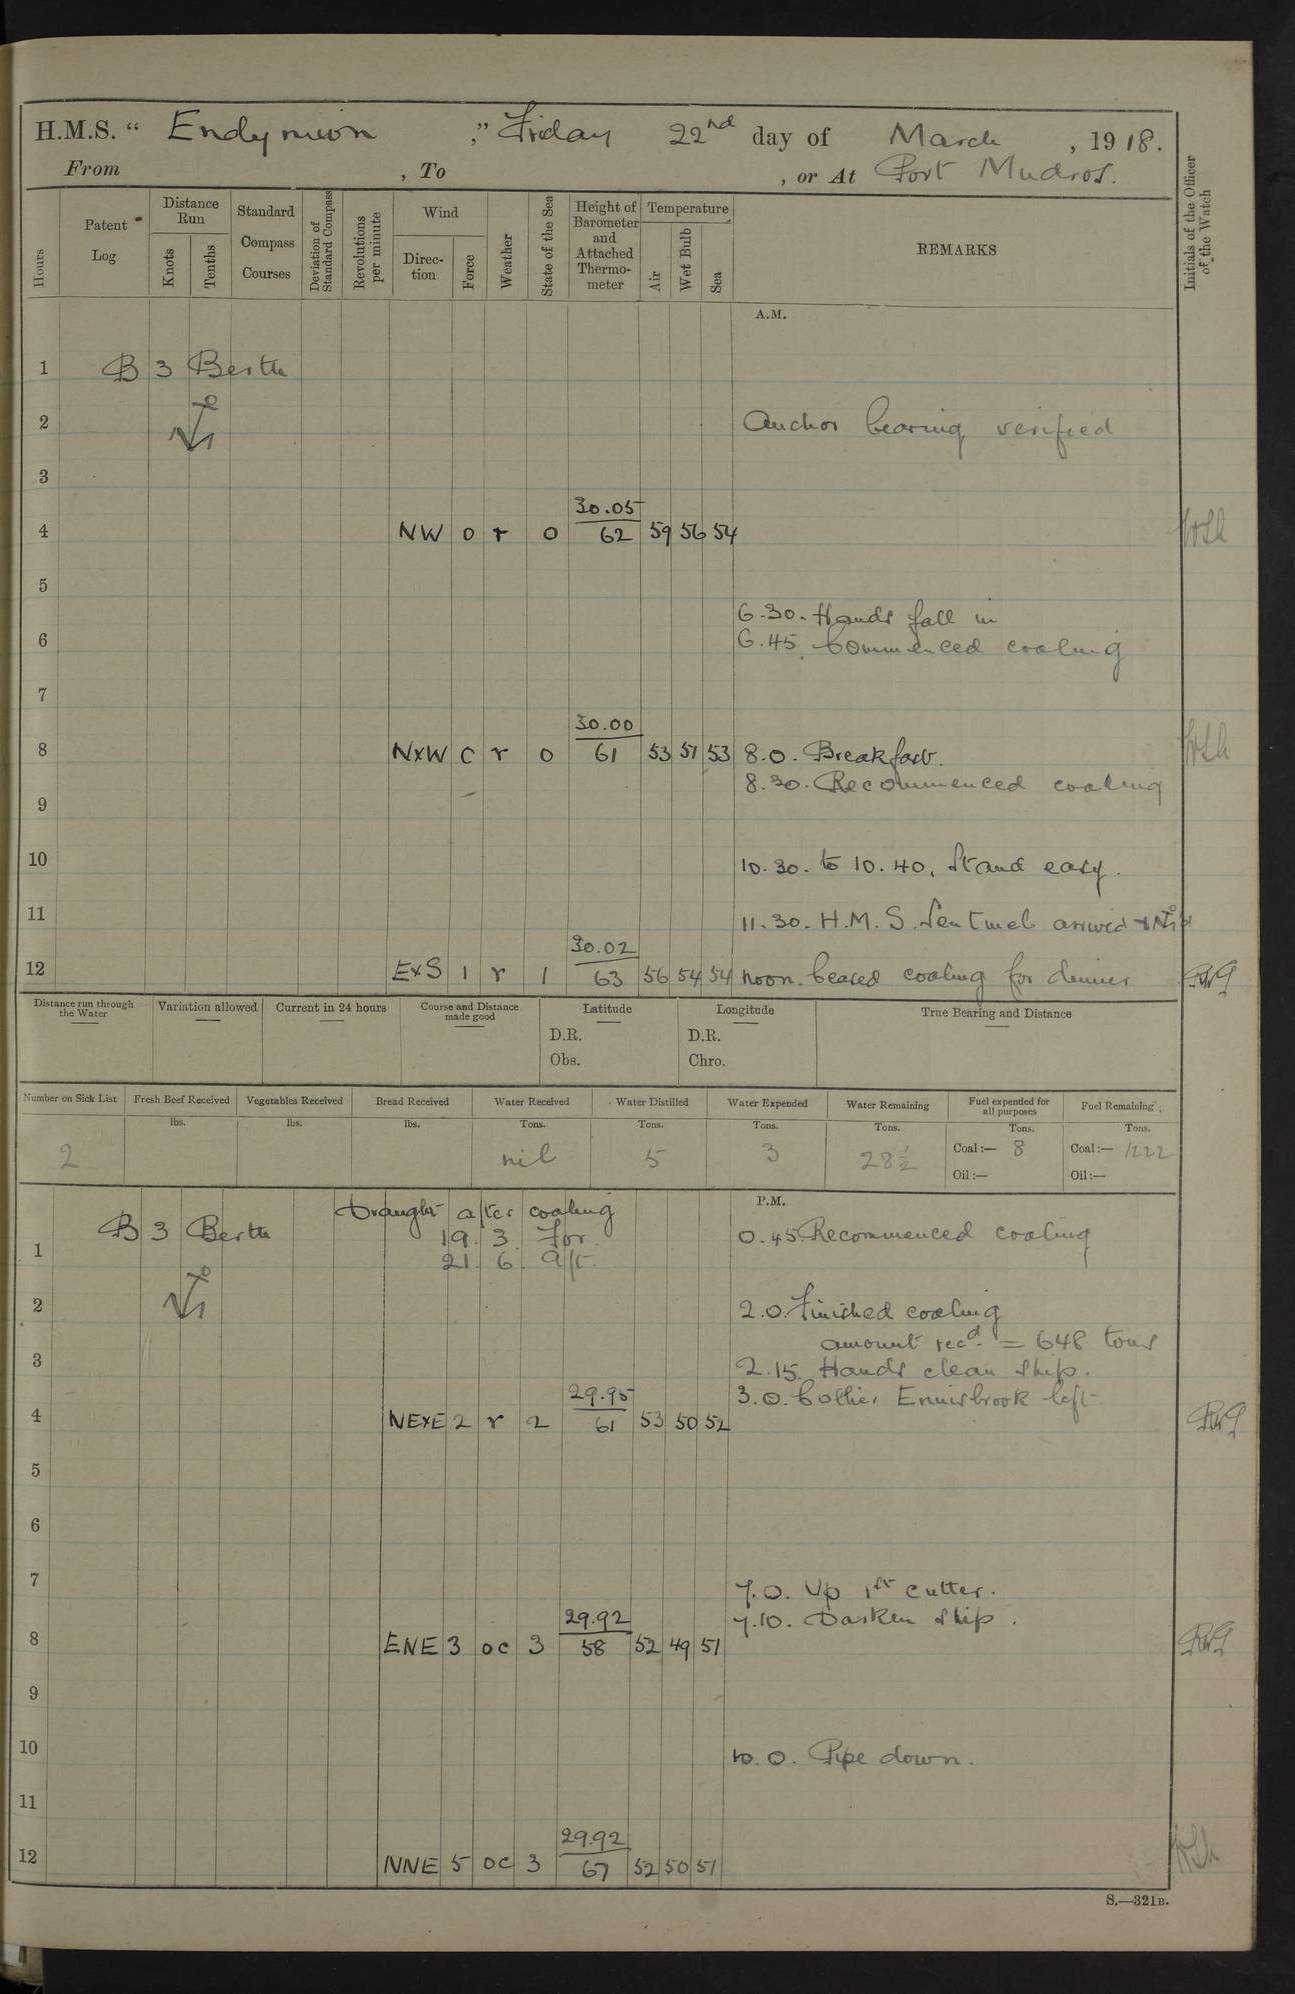 H.M.S. “ Endymion ,” Friday 22nd day of March , 1918.
From , To , or At Port Mudros.
Hours
Patent Log
Distance Run
Knots
Tenths
Standard Compass Courses
Deviation of Standard Compass
Revolutions per minute
Wind
Direction
Force
Weather
State of the Sea
Height of Barometer and Attached Thermometer
Temperature
Air
Wet Bulb
Sea
REMARKS
Initials of the Officer of the Watch
A.M.
1 B 3 Berth
2 Anchor bearing verified
3
30.05
4 NW 0 r 0 62 59 56 54
5
6.30. Hands fall in
6 6.45. Commenced coaling
7
30.00
8 NxW c r 0 61 53 51 53 8.0. Breakfast.
8.30. Recommenced coaling
9
10 10.30. to 10.40. Stand easy.
11 11.30. H.M.S. Sentinel arrived &
30.02
12 ExS 1 r 1 63 56 54 54 noon. Ceased coaling for dinner
Distance run through the Water
Variation allowed
Current in 24 hours
Course and Distance made good
Latitude
D.R.
Obs.
Longitude
D.R.
Chro.
True Bearing and Distance
Number on Sick List Fresh Beef Received Vegetables Received Bread Received Water Received Water Distilled Water Expended Water Remaining Fuel expended for all purposes Fuel Remaining
lbs. lbs. lbs. Tons. Tons. Tons. Tons. Tons. Tons.
2 nil 5 3 28½ Coal:— 8 Coal:— 1222
Oil:— Oil:—
P.M.
Draught after coaling
B 3 Berth 19. 3. For. 0.45 Recommenced coaling
1 21. 6. aft.
2 2.0. Finished coaling
amount recd. = 648 tons
3 2.15. Hands clean ship.
29.95 3.0. Collier Ennisbrook left.
4 NExE 2 r 2 61 53 50 52
5
6
7 7.0. Up 1st cutter.
29.92 7.10. Darken ship.
8 ENE 3 oc 3 58 52 49 51
9
10 10.0. Pipe down.
11
29.92
12 NNE 5 oc 3 67 52 50 51
S.—321B.